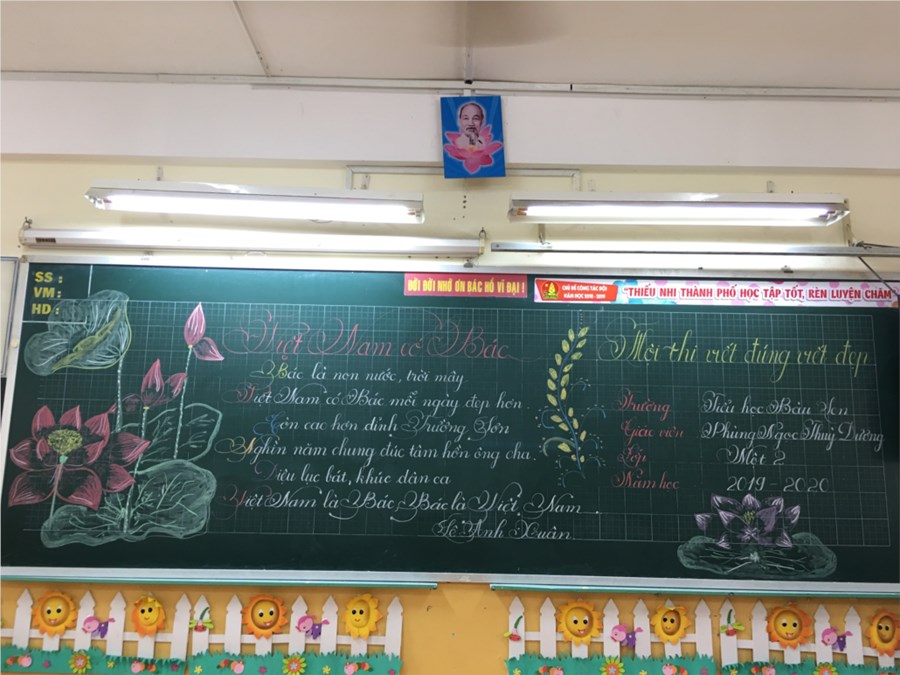 SS :
VM :
HD :
ĐỜI ĐỜI NHỚ ƠN BÁC HỒ VĨ ĐẠI !
CHỦ ĐỀ CÔNG TÁC ĐỘI
NĂM HỌC 2018 - 2019
"THIẾU NHI THÀNH PHỐ HỌC TẬP TỐT, RÈN LUYỆN CHĂM"
Việt Nam có Bác
Bác là non nước, trời mây
Việt Nam có Bác mỗi ngày đẹp hơn
Còn cao hơn đỉnh Trường Sơn
Nghìn năm chung đúc tâm hồn ông cha.
Điệu lục bát, khúc dân ca
Việt Nam là Bác, Bác là Việt Nam
Lê Anh Xuân
Hội thi viết đúng viết đẹp
Trường Tiểu học Bàu Sen
Giáo viên Phùng Ngọc Thuỳ Dương
Lớp Một 2
Năm học 2019 - 2020